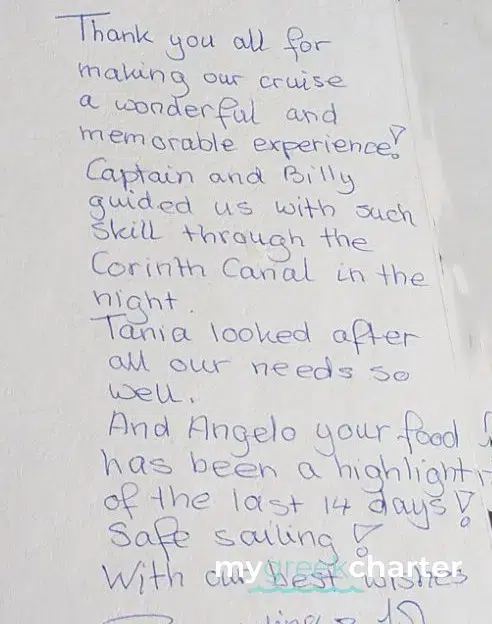 Thank you all for
making our cruise
a wonderful and
memorable experience!
Captain and Billy
guided us with such
skill through the
Corinth Canal in the
night.
Tania looked after
all our needs so
well.
And Angelo your food
has been a highlight
of the last 14 days!
Safe sailing!
With our best wishes
mygreekcharter